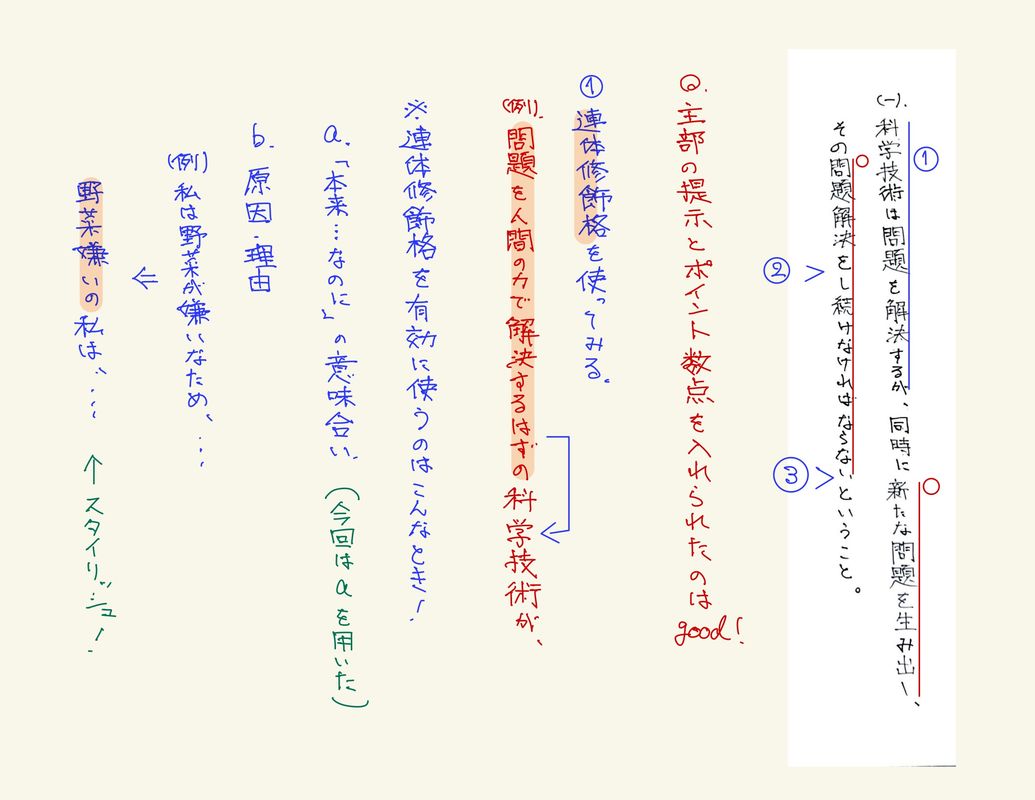 (一).科学技術は問題を解決するが、同時に新たな問題を生み出し、
その問題解決をし続けなければならないということ。
①
②
③
◎.主部の提示とポイント数点を入れられたのはgood!
①連体修飾格を使ってみる。
(例).問題を人間の力で解決するはずの科学技術が、
※連体修飾格を有効に使うのはこんなとき!
a.「本来…なのに」の意味合い.(今回はaを用いた)
b.原因・理由
(例)私は野菜が嫌いなため、…
⇐
野菜嫌いの私は、… ↑スタイリッシュ!